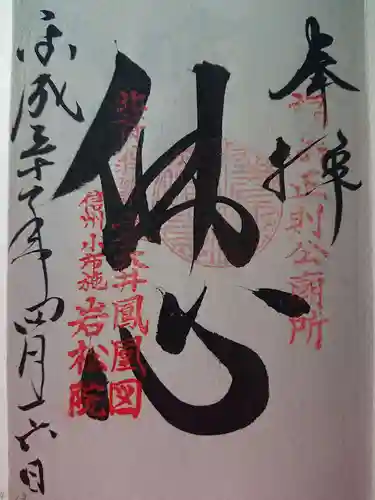 奉拝
正則公廟所
休心
天井鳳凰図
信州小布施
岩松院
平成三十年四月六日